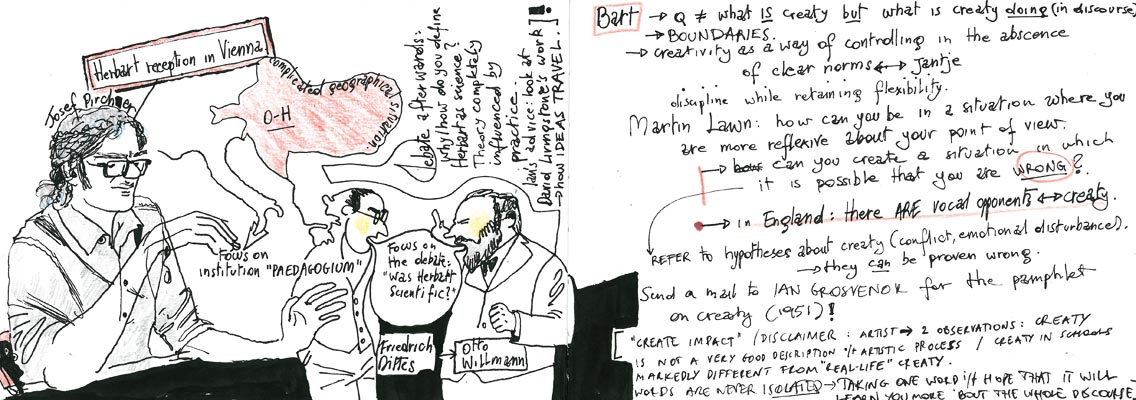 Herbart reception in Vienna
Josef Pircher
complicated geographical situation
O-H
Debate afterwards:
why/how do you define
Herbart as science?
Theory completely
influenced by
practice.
Ian's advice: look at
David Livingstone's work
→ how IDEAS TRAVEL.
]!
Focus on
institution "PAEDAGOGIUM"
Focus on
the debate:
"was Herbart
scientific?"
Friedrich
Dittes
→ Otto
Willmann
Bart → Q ≠ what IS creaty but what is creaty doing (in discourse)
→ BOUNDARIES.
→ creativity as a way of controlling in the abscence
of clear norms ↔ Jantje
discipline while retaining flexibility.
Martin Lawn: how can you be in a situation where you
are more reflexive about your point of view.
→ how can you create a situation in which
it is possible that you are WRONG?
→ in England: there ARE vocal opponents ↔ creaty.
REFER to hypotheses about creaty (conflict, emotional disturbance).
→ they can be proven wrong.
Send a mail to IAN GROSVENOR for the pamphlet
on creaty (1951)!
"CREATE IMPACT" / DISCLAIMER: ARTIST → 2 OBSERVATIONS: CREATY
IS NOT A VERY GOOD DESCRIPTION v/t ARTISTIC PROCESS / CREATY IN SCHOOLS
MARKEDLY DIFFERENT FROM "REAL-LIFE" CREATY.
WORDS ARE NEVER ISOLATED → TAKING ONE WORD i/t HOPE THAT IT WILL
LEARN YOU MORE 'BOUT THE WHOLE DISCOURSE